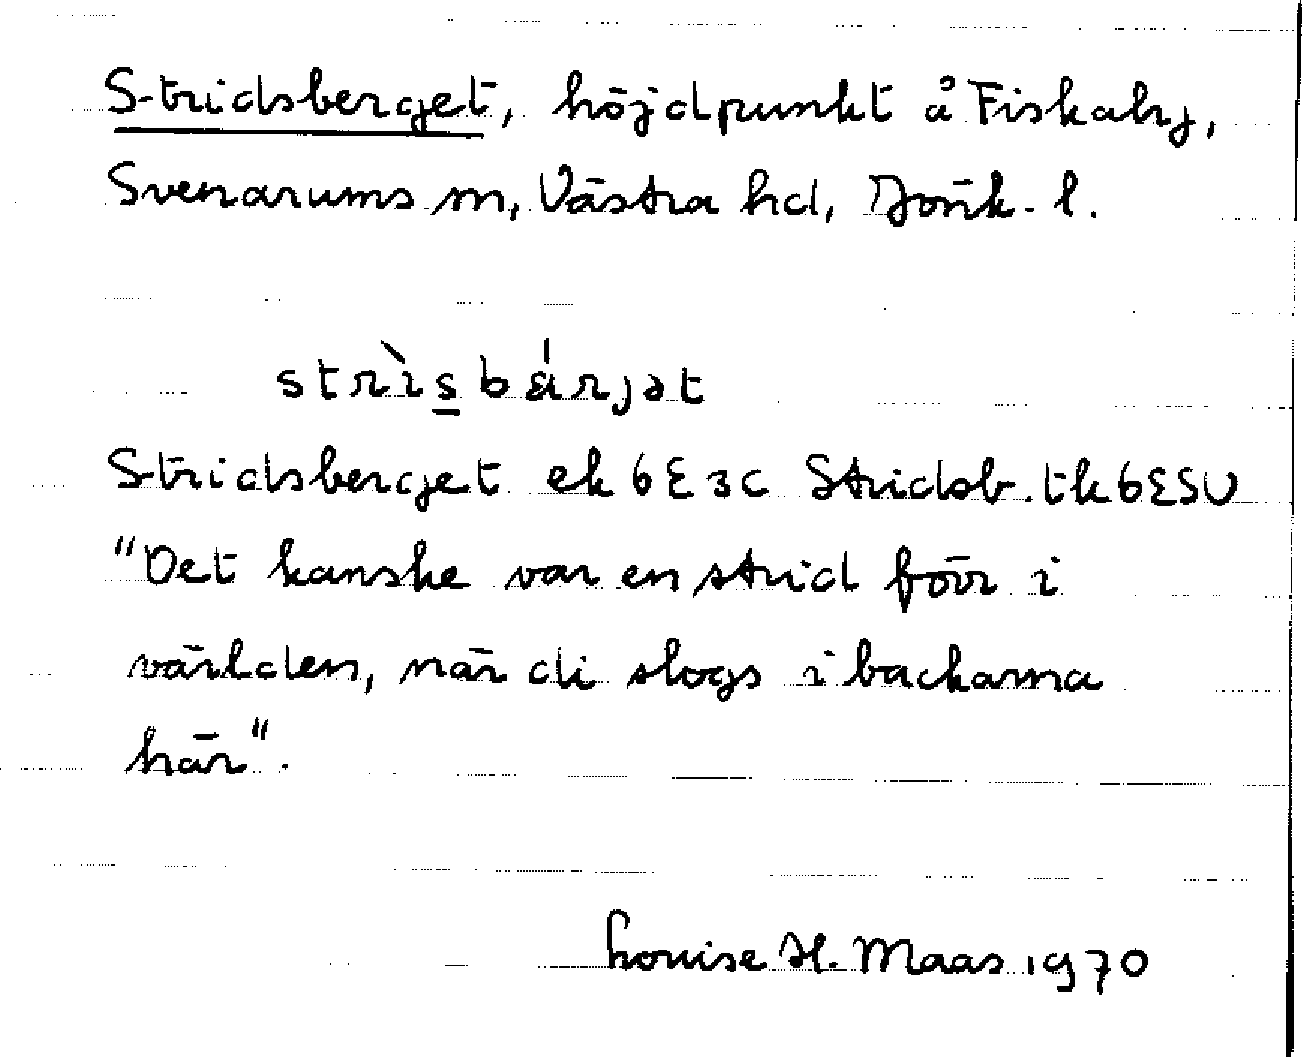 Stridsberget, höjdpunkt å Fiskaby,
Svenarums sn, Västra hd, Jönk. l.
strìsbǽrjət
Stridsberget ek 6E3c Stridsb. tk6ESV
"Det kanske var en strid förr i
världen, när di slogs i backarna
här".
Louise H. Maas 1970